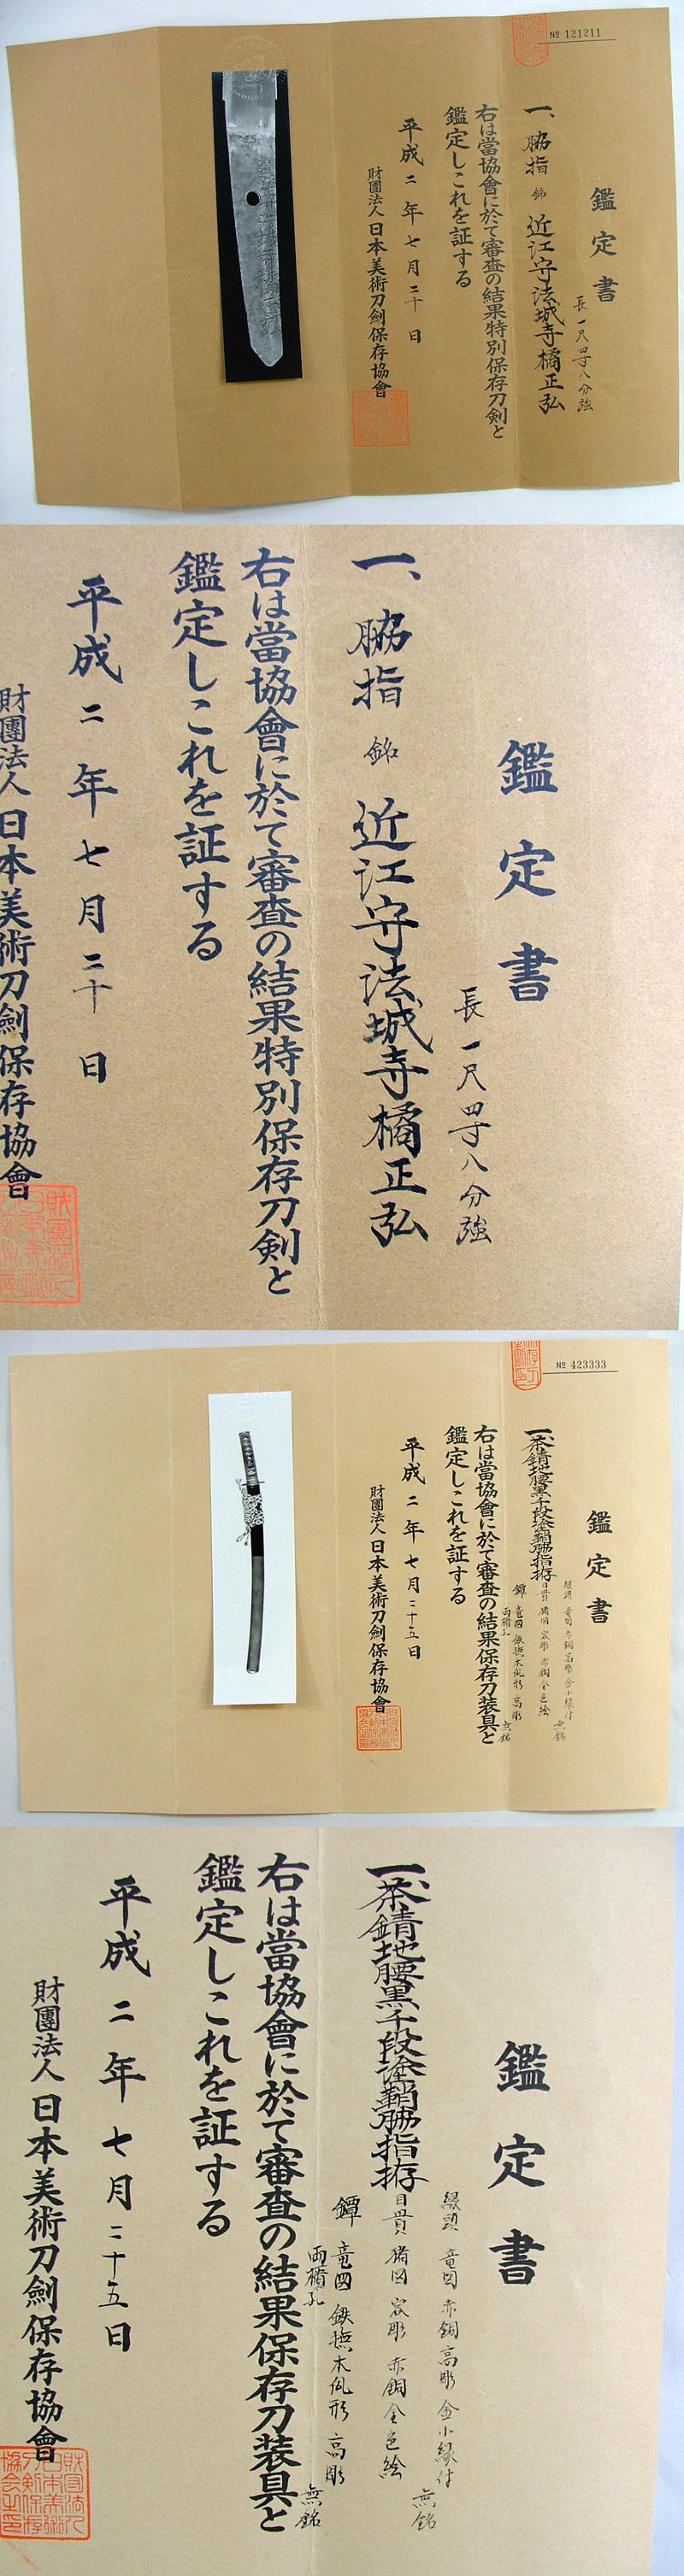 № 121211
鑑定書
長一尺四寸八分強
一、脇指 銘 近江守法城寺橘正弘
右は當協會に於て審査の結果特別保存刀剣と
鑑定しこれを証する
平成二年七月二十日
財團法人日本美術刀劍保存協會
鑑定書
長一尺四寸八分強
一、脇指 銘 近江守法城寺橘正弘
右は當協會に於て審査の結果特別保存刀剣と
鑑定しこれを証する
平成二年七月二十日
財團法人日本美術刀劍保存協會
№ 423333
鑑定書
縁頭 竜図 赤銅高彫 金小縁付 無銘
一、茶錆地腰黒千段塗鞘脇指拵
目貫 猪図 容彫 赤銅金色絵
鐔 竜図 鉄撫木瓜形 高彫
両櫃孔 無銘
右は當協會に於て審査の結果保存刀装具と
鑑定しこれを証する
平成二年七月二十五日
財團法人日本美術刀劍保存協會
鑑定書
縁頭 竜図 赤銅高彫 金小縁付 無銘
一、茶錆地腰黒千段塗鞘脇指拵
目貫 猪図 容彫 赤銅金色絵
鐔 竜図 鉄撫木瓜形 高彫
両櫃孔 無銘
右は當協會に於て審査の結果保存刀装具と
鑑定しこれを証する
平成二年七月二十五日
財團法人日本美術刀劍保存協會